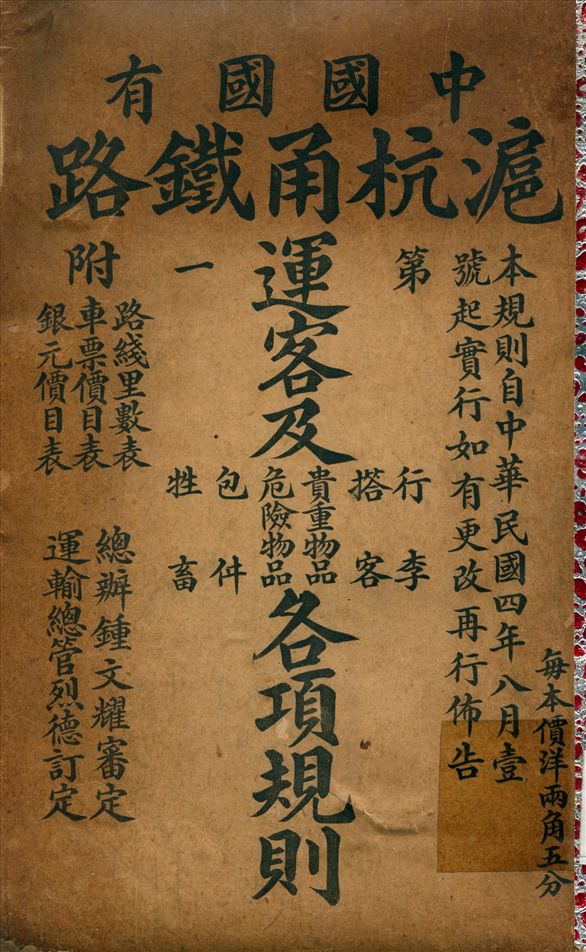 中國國有
滬杭甬鐵路
本規則自中華民國四年八月壹
號起實行如有更改再行佈告
每本價洋兩角五分
第一
運客及
行李
搭客
貴重物品
危險物品
包件
牲畜
各項規則
附
路綫里數表
車票價目表
銀元價目表
總辦鍾文耀審定
運輸總管烈德訂定